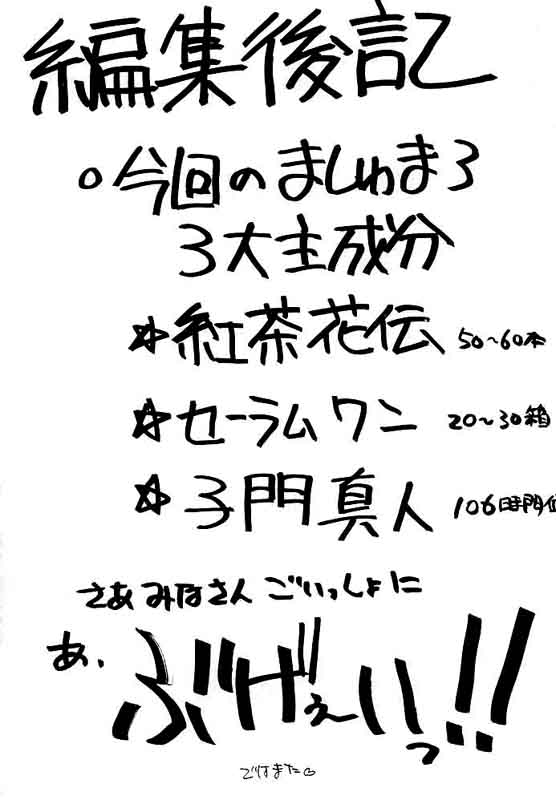 編集後記
○今回のましゅまろ
3大主成分
☆紅茶花伝 50~60本
☆セーラムワン 20~30箱
☆子門真人 106時間位
さあみなさんごいっしょに
あ、ぶげぇいっ!!
ではまた